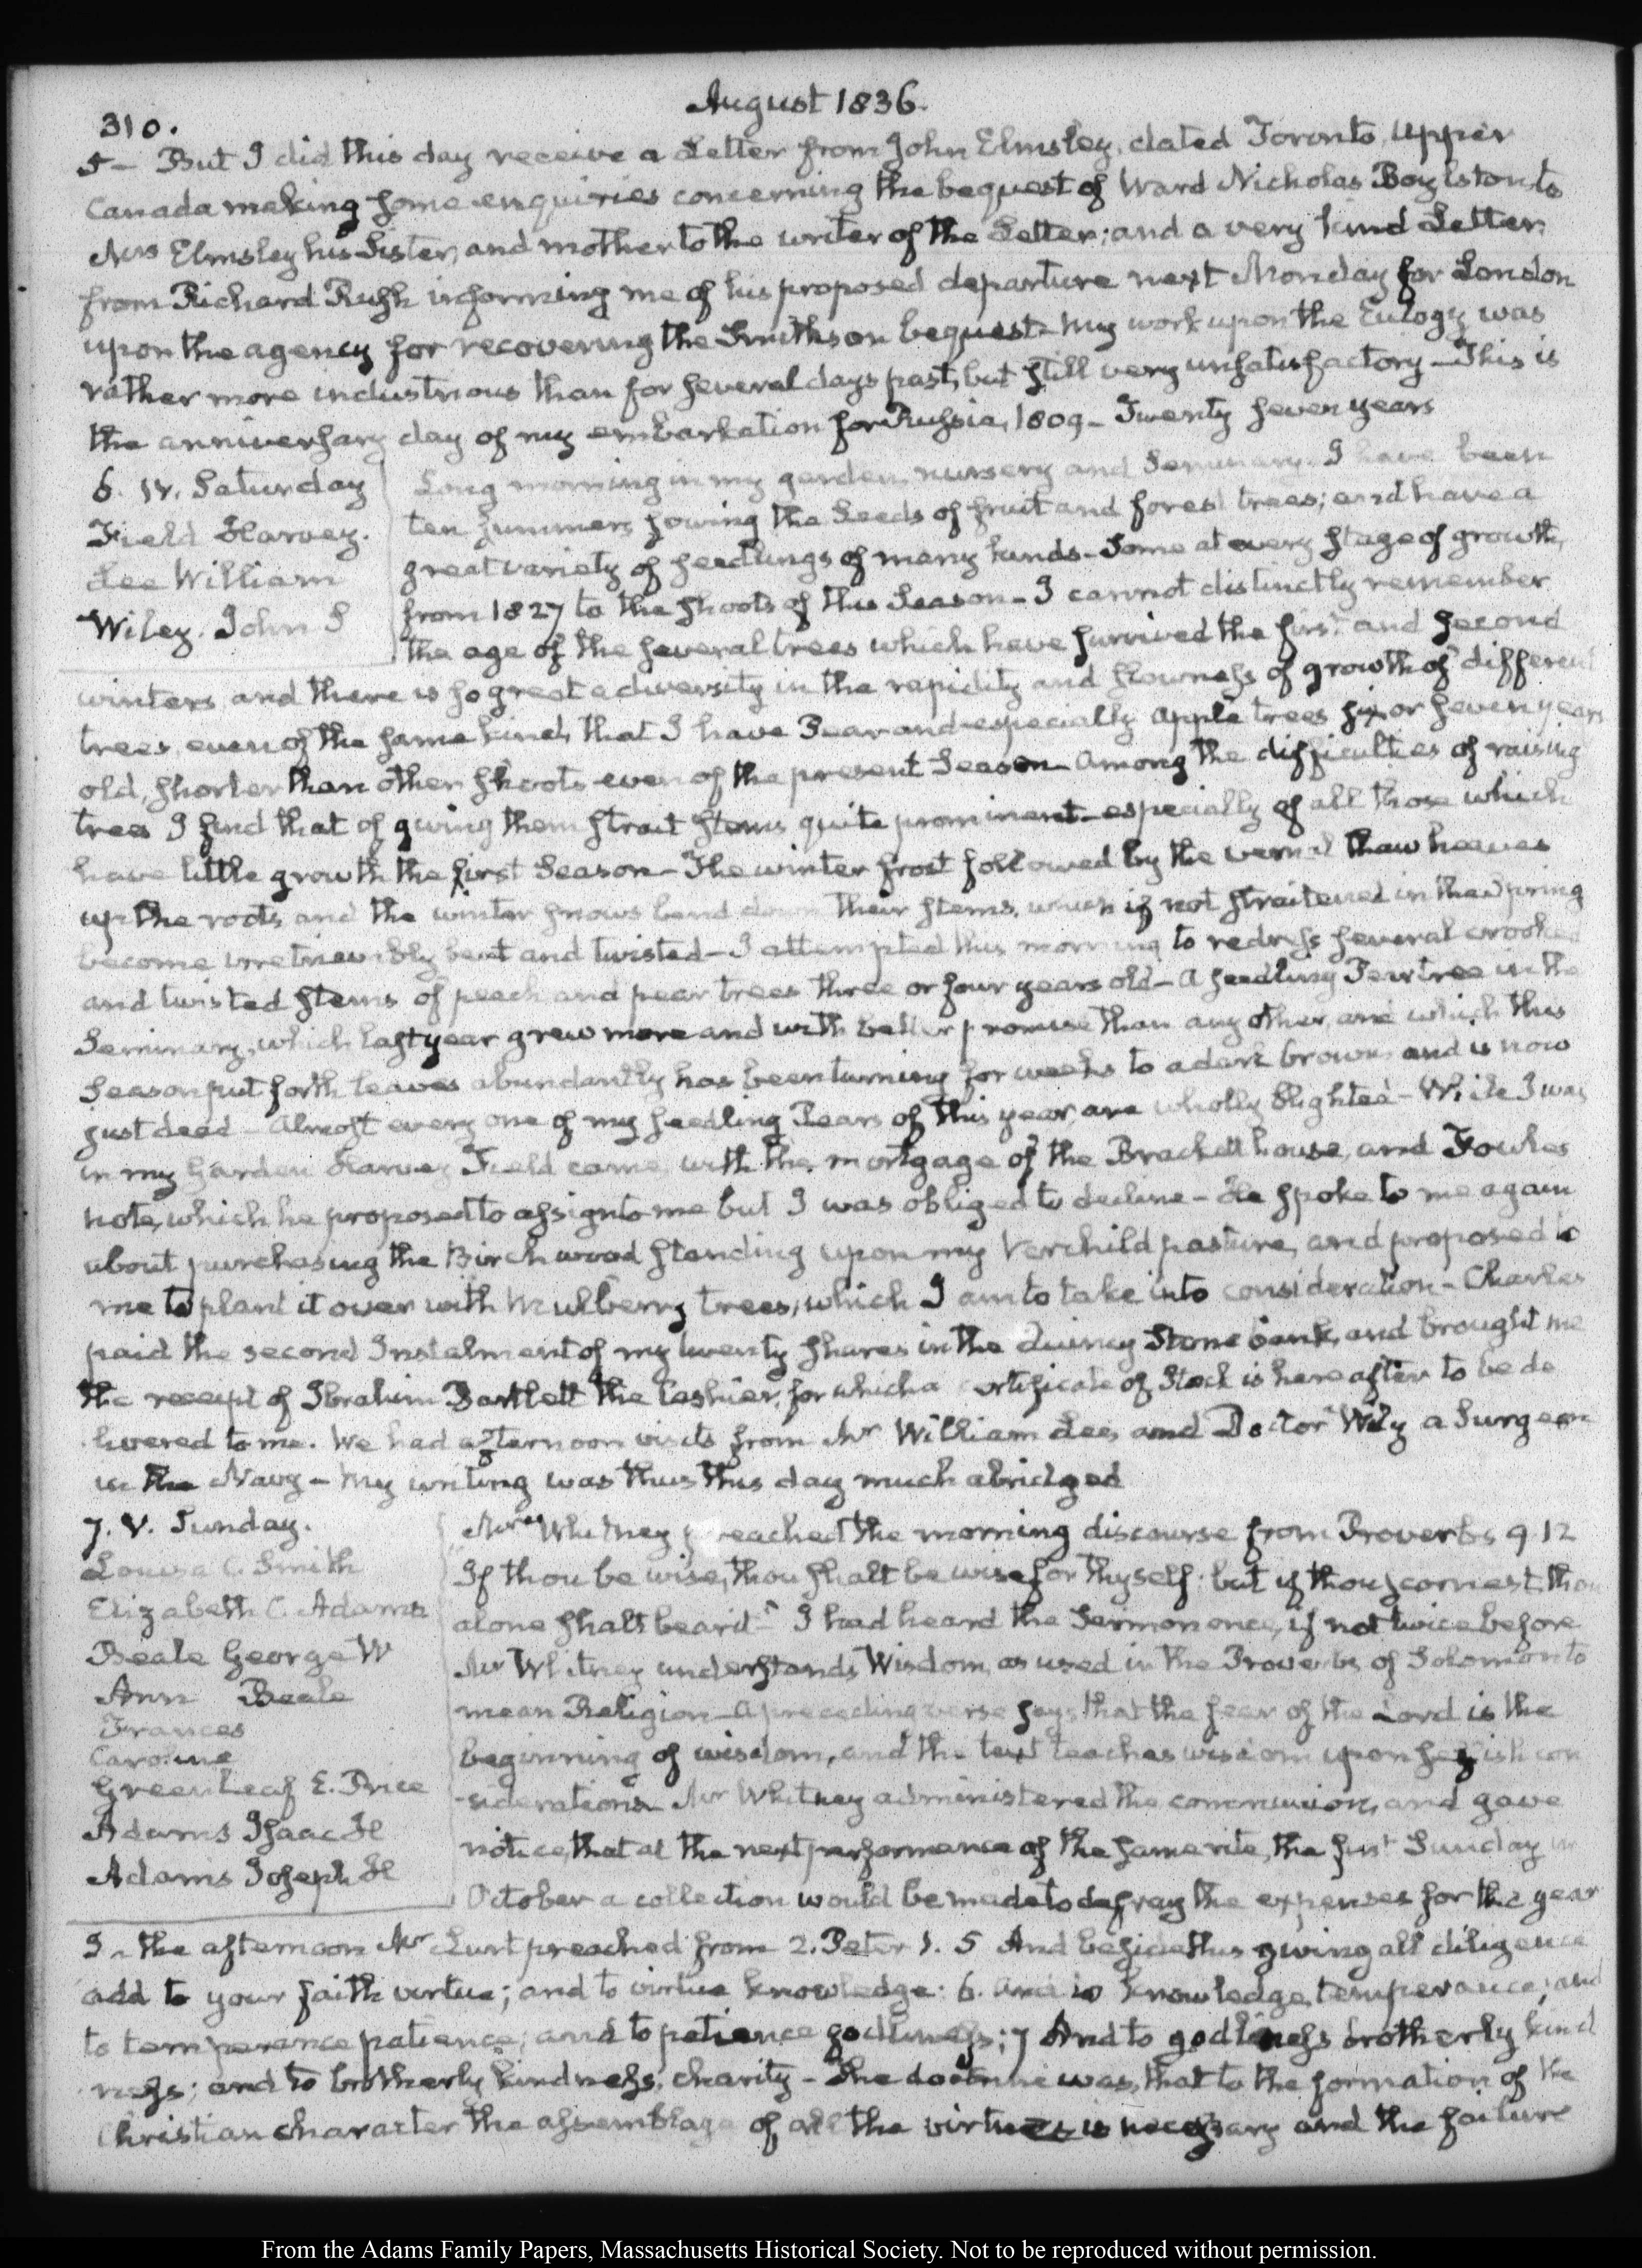 August 1836.
310.
5 – But I did this day receive a Letter from John Elmsley, dated Toronto, Upper
Canada making some enquiries concerning the bequest of Ward Nicholas Boylston to
Mrs Elmsley his Sister, and mother to the writer of the Letter; and a very kind Letter
from Richard Rush informing me of his proposed departure next Monday for London
upon the agency for recovering the Smithson bequest – My work upon the Eulogy was
rather more industrious than for several days past, but still very unsatisfactory – This is
the anniversary day of my embarkation for Russia, 1809 – Twenty seven years
6. IV. Saturday
Field Harvey.
Lee William
Wiley. John S
Long morning in my garden, nursery and Seminary. I have been
ten summers sowing the Seeds of fruit and forest trees; and have a
great variety of seedlings of many kinds – Some at every stage of growth,
from 1827 to the shoots of this Season – I cannot distinctly remember
the age of the several trees which have survived the first and second
winters and there is so great a diversity in the rapidity and slowness of growth of different
trees even of the same kind, that I have Pear and especially apple trees six or seven years
old, shorter than other shoots even of the present Season – Among the difficulties of raising
trees I find that of giving them strait stems quite prominent – especially of all those which
have little growth the first Season – The winter frost followed by the vernal thaw heaves
up the roots, and the winter snows bend down their stems, which if not straitened in the Spring
become irretrievably bent and twisted – I attempted this morning to redress several crooked
and twisted stems of peach and pear trees three or four years old – A seedling Pear tree in the
Seminary, which last year grew more and with better promise than any other, and which this
Season put forth leaves abundantly has been turning for weeks to a dark brown and is now
just dead – Almost every one of my seedling Pears of this year, are wholly blighted – While I was
in my Garden Harvey Field came with the mortgage of the Brackett house, and Fowles
note, which he proposed to assign to me but I was obliged to decline – He spoke to me again
about purchasing the Birch wood standing upon my Verchild pasture, and proposed to
me to plant it over with Mulberry trees, which I am to take into consideration – Charles
paid the second Instalment of my twenty shares in the Quincy Stone bank, and brought me
the receipt of Ibrahim Bartlett the Cashier, for which a certificate of Stock is hereafter to be de
livered to me. We had afternoon visits from Mr William Lee, and Doctor Wily a Surgeon
in the Navy – My writing was thus this day much abridged
7. V. Sunday.
Louisa C. Smith
Elizabeth C. Adams
Beale George W
Ann Beale
Frances
Caroline
Greenleaf E. Price
Adams Isaac H
Adams Joseph H
Mr Whitney preached the morning discourse from Proverbs 9.12
If thou be wise, thou shalt be wise for thyself: but if thou scornest, thou
alone shalt bear it – I had heard the Sermon once, if not twice before
Mr Whitney understands Wisdom, as used in the Proverbs of Solomon to
mean Religion – A preceding verse says that the fear of the Lord is the
beginning of wisdom, and the text teaches wisdom upon selfish con
siderations – Mr Whitney administered the communion, and gave
notice, that at the next performance of the same rite, the first Sunday in
October a collection would be made to defray the expenses for the year
In the afternoon Mr Lunt preached from 2. Peter 1. 5 And beside this giving all diligence
add to your faith virtue; and to virtue knowledge: 6. And to knowledge, temperance; and
to temperance patience; and to patience godliness; 7 And to godliness brotherly kind
ness; and to brotherly kindness, charity – The doctrine was, that to the formation of the
Christian character the assemblage of all the virtues is necessary and the failure
From the Adams Family Papers, Massachusetts Historical Society. Not to be reproduced without permission.